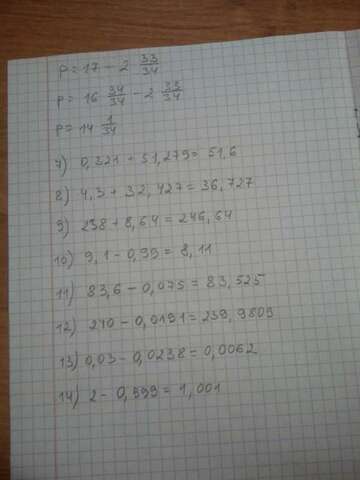 p = 17 - 2 33/34
p = 16 34/34 - 2 33/34
p = 14 1/34
7) 0,321 + 51,279 = 51,6
8) 4,3 + 32,427 = 36,727
9) 238 + 8,64 = 246,64
10) 9,1 - 0,99 = 8,11
11) 83,6 - 0,075 = 83,525
12) 240 - 0,0191 = 239,9809
13) 0,03 - 0,0238 = 0,0062
14) 2 - 0,999 = 1,001